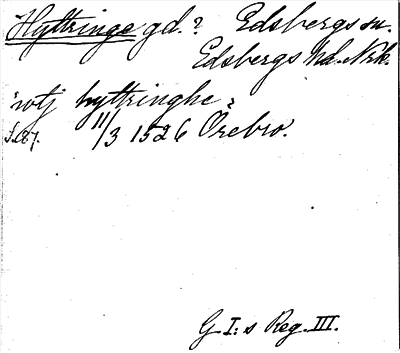 Hyttringe gd.? Edsbergs sn.
Edsbergs hd. Nrk.
"wtj hyttringhe"
S.87. 11/3 1526 Örebro.
G I:s Reg. III.